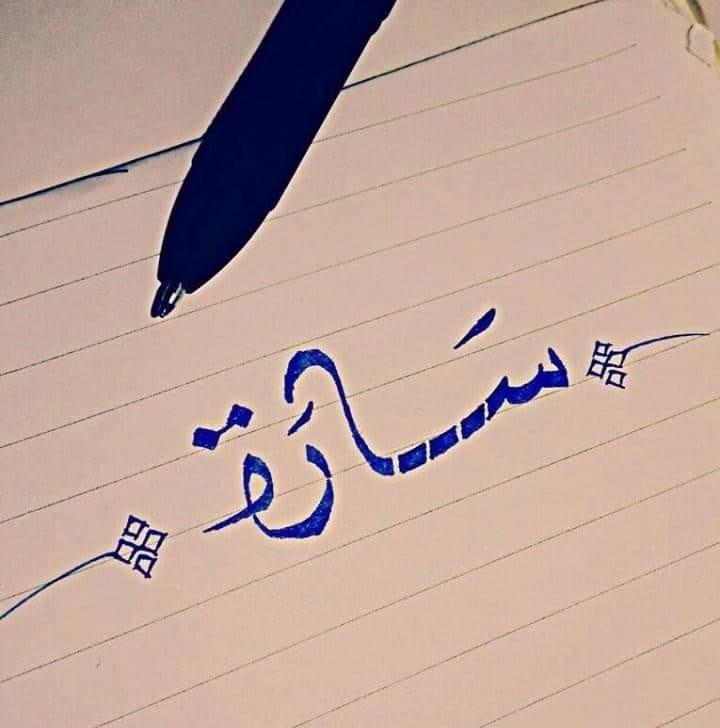 سَارَة